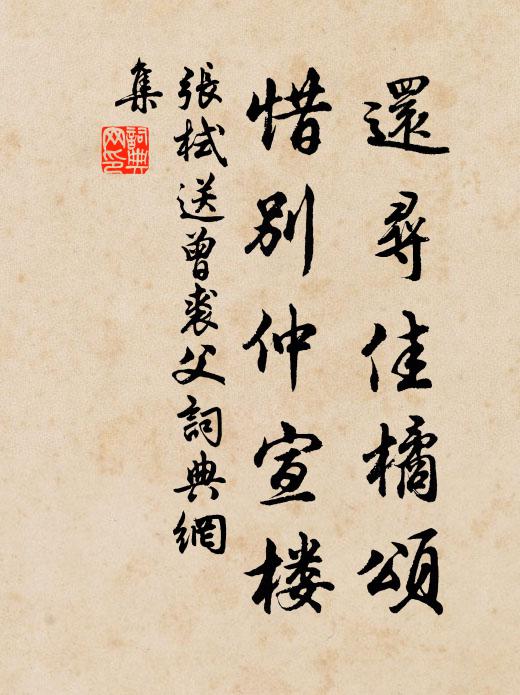 還尋佳橘頌
惜別仲宣楼
張栻送曾裘父詞典網
集
詞典
网印